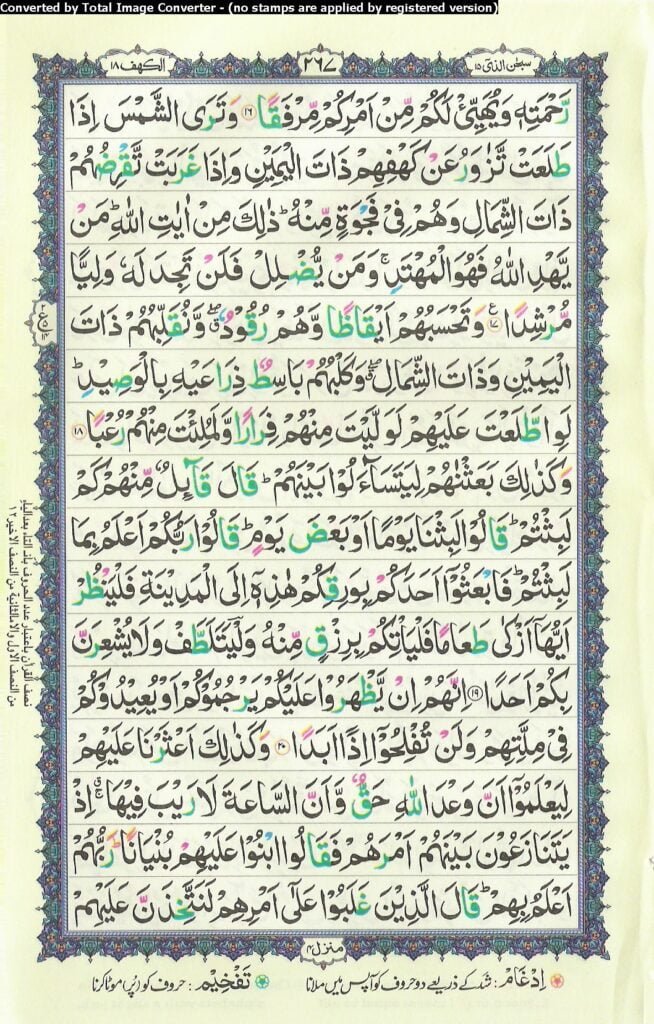 Converted by Total Image Converter - (no stamps are applied by registered version)
سبحٰن الذی ۱۵
۲۶۷
الکهف ۱۸
رَّحْمَتِهٖ وَيُهَيِّئْ لَكُمْ مِّنْ اَمْرِكُمْ مِّرْفَقًا ۱۶ وَتَرَى الشَّمْسَ اِذَا
طَلَعَتْ تَّزٰوَرُ عَنْ كَهْفِهِمْ ذَاتَ الْيَمِيْنِ وَاِذَا غَرَبَتْ تَّقْرِضُهُمْ
ذَاتَ الشِّمَالِ وَهُمْ فِيْ فَجْوَةٍ مِّنْهُ ؕ ذٰلِكَ مِنْ اٰيٰتِ اللّٰهِ ؕ مَنْ
يَّهْدِ اللّٰهُ فَهُوَ الْمُهْتَدِ ۚ وَمَنْ يُّضْلِلْ فَلَنْ تَجِدَ لَهٗ وَلِيًّا
مُّرْشِدًا ۱۷ ع وَتَحْسَبُهُمْ اَيْقَاظًا وَّهُمْ رُقُوْدٌ ۖۗ وَّنُقَلِّبُهُمْ ذَاتَ
الْيَمِيْنِ وَذَاتَ الشِّمَالِ ۖۗ وَكَلْبُهُمْ بَاسِطٌ ذِرَاعَيْهِ بِالْوَصِيْدِ ؕ
لَوِ اطَّلَعْتَ عَلَيْهِمْ لَوَلَّيْتَ مِنْهُمْ فِرَارًا وَّلَمُلِئْتَ مِنْهُمْ رُعْبًا ۱۸
وَكَذٰلِكَ بَعَثْنٰهُمْ لِيَتَسَآءَلُوْا بَيْنَهُمْ ؕ قَالَ قَآئِلٌ مِّنْهُمْ كَمْ
لَبِثْتُمْ ؕ قَالُوْا لَبِثْنَا يَوْمًا اَوْ بَعْضَ يَوْمٍ ؕ قَالُوْا رَبُّكُمْ اَعْلَمُ بِمَا
لَبِثْتُمْ ؕ فَابْعَثُوْۤا اَحَدَكُمْ بِوَرِقِكُمْ هٰذِهٖۤ اِلَى الْمَدِيْنَةِ فَلْيَنْظُرْ
اَيُّهَاۤ اَزْكٰى طَعَامًا فَلْيَاْتِكُمْ بِرِزْقٍ مِّنْهُ وَلْيَتَلَطَّفْ وَلَا يُشْعِرَنَّ
بِكُمْ اَحَدًا ۱۹ اِنَّهُمْ اِنْ يَّظْهَرُوْا عَلَيْكُمْ يَرْجُمُوْكُمْ اَوْ يُعِيْدُوْكُمْ
فِيْ مِلَّتِهِمْ وَلَنْ تُفْلِحُوْۤا اِذًا اَبَدًا ۲۰ وَكَذٰلِكَ اَعْثَرْنَا عَلَيْهِمْ
لِيَعْلَمُوْۤا اَنَّ وَعْدَ اللّٰهِ حَقٌّ وَّاَنَّ السَّاعَةَ لَا رَيْبَ فِيْهَا ۚۗ اِذْ
يَتَنَازَعُوْنَ بَيْنَهُمْ اَمْرَهُمْ فَقَالُوا ابْنُوْا عَلَيْهِمْ بُنْيَانًا ؕ رَبُّهُمْ
اَعْلَمُ بِهِمْ ؕ قَالَ الَّذِيْنَ غَلَبُوْا عَلٰۤى اَمْرِهِمْ لَنَتَّخِذَنَّ عَلَيْهِمْ
نصف القرآن باعتبار عدد الحروف بأن التاء بعد الياء
من النصف الاول واللام الثانية من النصف الاخير ۱۲
منزل ۴
اِدْغَام : شد کے ذریعے دو حروف کو آپس میں ملانا
تَفْخِيْم : حروف کو (پُر) موٹا کرنا